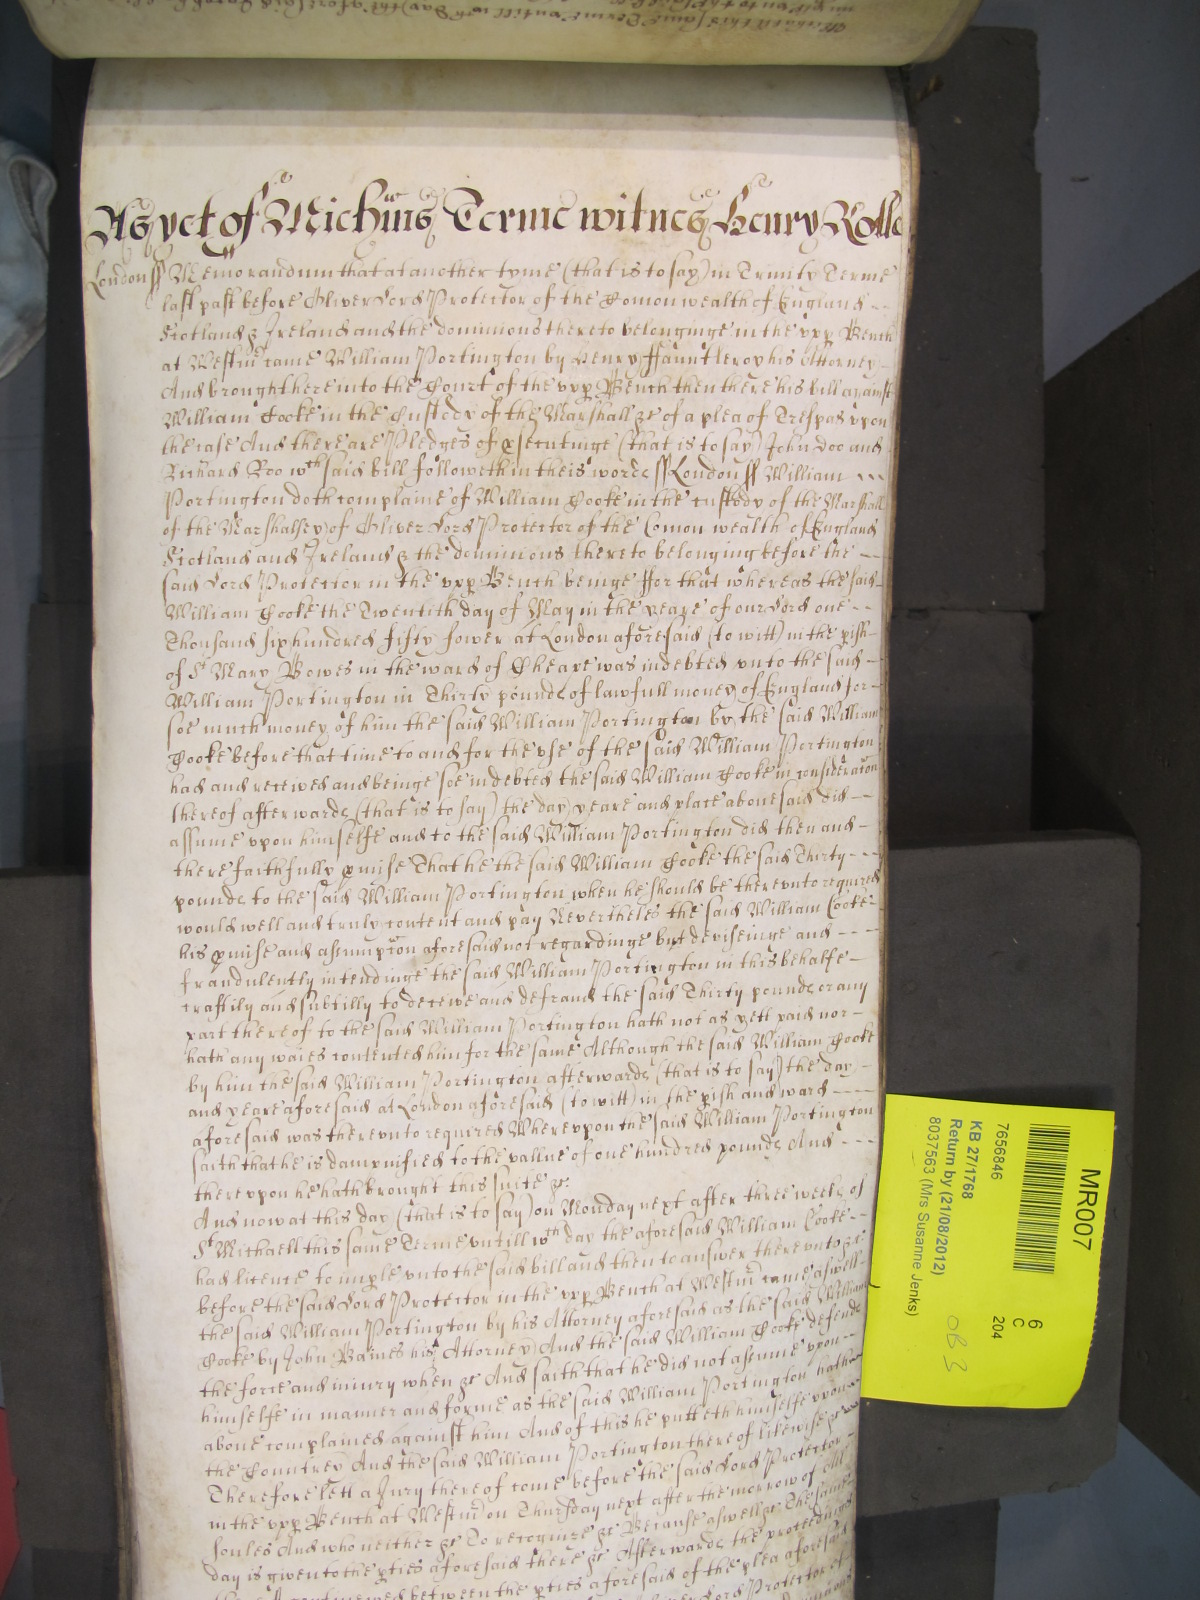 As yet of Michīs Terme witnes Henry Rolle
London ss Memorandum that at another tyme (that is to say) in Trinity Terme
last past before Oliver Lord Protector of the Comon wealth of England --
Scotland & Ireland and the dominions thereto belonginge in the vpp Bench
at Westm̄ came William Portington by Henry ffauntleroy his Attorney -
And brought here into the Court of the vpp Bench then there his bill against
William Cooke in the Custody of the Marshall &c of a plea of Trespas vpon
the case And there are Pledges of psecutinge (that is to say) John Doo and
Richard Roo wch said bill followeth in theis words ss London ss William ---
Portington doth complaine of William Cooke in the custody of the Marshall
of the Marshalsey of Oliver Lord Protector of the Comon wealth of England
Scotland and Ireland & the dominions thereto belonging before the --
said Lord Protector in the vpp Bench beinge ffor that whereas the said -
William Cooke the Twentith day of May in the yeare of our Lord one --
Thousand six hundred fifty fower at London aforesaid (to witt) in the pish -
of St Mary Bowes in the ward of Cheape was indebted vnto the said -
William Portington in Thirty pounds of lawfull money of England for -
soe much money of him the said William Portington by the said William
Cooke before that time to and for the vse of the said William Portington
had and received and beinge soe indebted the said William Cooke in consideracōn
thereof afterwards (that is to say) the day yeare and place abovesaid did --
assume vpon himselfe and to the said William Portington did then and -
there faithfully pmise That he the said William Cooke the said Thirty ---
pounds to the said William Portington when he should be therevnto required
would well and truly content and pay Nevertheles the said William Cooke -
his pmise and assumpcōn aforesaid not regardinge but deviseinge and ----
fraudulently intendinge the said William Portington in this behalfe -
craftily and subtilly to deceive and defraud the said Thirty pounds or any
part thereof to the said William Portington hath not as yett paid nor -
hath any waies contented him for the same Although the said William Cooke
by him the said William Portington afterwards (that is to say) the day -
and yeare aforesaid at London aforesaid (to witt) in the pish and ward ----
aforesaid was therevnto required Wherevpon the said William Portington
saith that he is dampnified to the vallue of one hundred pounds And ---
therevpon he hath brought this suite &c
And now at this day (that is to say) on Monday next after three weeks of
St Michaell this same Terme vntill wch day the aforesaid William Cooke --
had licence to imple vnto the said bill and then to answer therevnto &c
before the said Lord Protector in the vpp Bench at Westm̄ came aswell -
the said William Portington by his Attorney aforesaid as the said William
Cooke by John Baines his Attorney And the said William Cooke defends
the force and iniury when &c And saith that he did not assume vpon --
himselfe in manner and forme as the said William Portington hath
above complained against him And of this he putteth himselfe vpon
the Countrey And the said William Portington thereof likewise &c
Therefore lett a Jury thereof come before the said Lord Protector -
in the vpp Bench at Westm̄ on Thursday next after the morrow of All
soules And who neither &c To recognize &c Because aswell &c The same
day is given to the pties aforesaid there &c Afterwards the proceedings
between the pties aforesaid of the plea aforesaid
Lord Protector
MR007
6
C
204
7656846
KB 27/1768
Return by (21/08/2012)
8037563 (Mrs Susanne Jenks)
OB 3